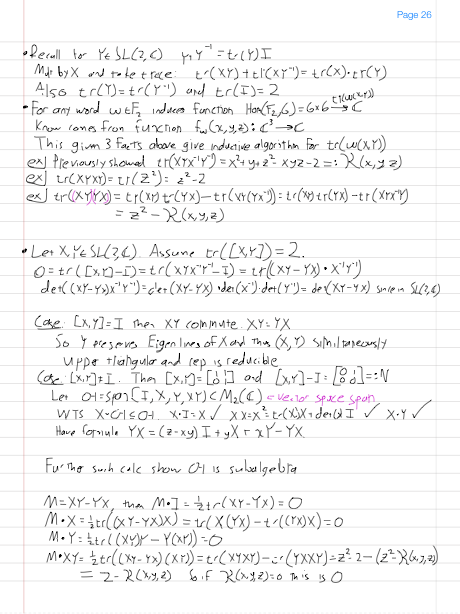 Page 26
• Recall for Y∈SL(2,C) Y+Y⁻¹=tr(Y)I
Mult by X and take trace: tr(XY)+tr(XY⁻¹)=tr(X)·tr(Y)
Also tr(Y)=tr(Y⁻¹) and tr(I)=2
• For any word w∈F₂ induces function Hom(F₂,G)=G×G → C
tr(w(X,Y))
Know comes from function f_w(x,y,z): C³→C
This given 3 facts above give inductive algorithm for tr(w(X,Y))
ex] Previously showed tr(XYX⁻¹Y⁻¹)=x²+y²+z²-xyz-2=:K(x,y,z)
ex] tr(XYXY)=tr(Z²)=z²-2
ex] tr((XY)(YX))=tr(XY)tr(YX)-tr(XY(YX)⁻¹)=tr(XY)tr(YX)-tr(XYX⁻¹Y⁻¹)
=z²-K(x,y,z)
• Let X,Y∈SL(2,C). Assume tr([X,Y])=2.
0=tr([X,Y]-I)=tr(XYX⁻¹Y⁻¹-I)=tr((XY-YX)·X⁻¹Y⁻¹)
det((XY-YX)X⁻¹Y⁻¹)=det(XY-YX)·det(X⁻¹)·det(Y⁻¹)=det(XY-YX) since in SL(2,C)
Case: [X,Y]=I then XY commute. XY=YX
So Y preserves Eigenlines of X and thus (X,Y) simultaneously
upper triangular and rep is reducible
Case: [X,Y]≠I. Then [X,Y]=[1 1; 0 1] and [X,Y]-I=[0 1; 0 0]=:N
Let Ol=span[I,X,Y,XY]<M₂(C) = vector space span
WTS X·Ol⊆Ol. X·I=X ✓ X·X=X²=tr(X)X+det(X)I ✓ X·Y ✓
Have formula YX=(z-xy)I+yX+xY-YX.
Further such calc show Ol is subalgebra
M=XY-YX, then M·I=½tr(XY-YX)=0
M·X=½tr((XY-YX)X)=tr(X(YX)-tr((YX)X)=0
M·Y=½tr((XY)Y-Y(XY))=0
M·XY=½tr((XY-YX)(XY))=tr(XYXY)-tr(YXXY)=z²-2-(z²-K(x,y,z))
=2-K(x,y,z) So if K(x,y,z)=0 this is 0